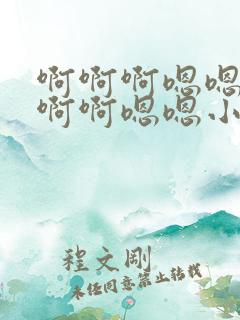 啊啊啊嗯嗯
啊啊嗯嗯小
程文刚
未经同意禁止转载